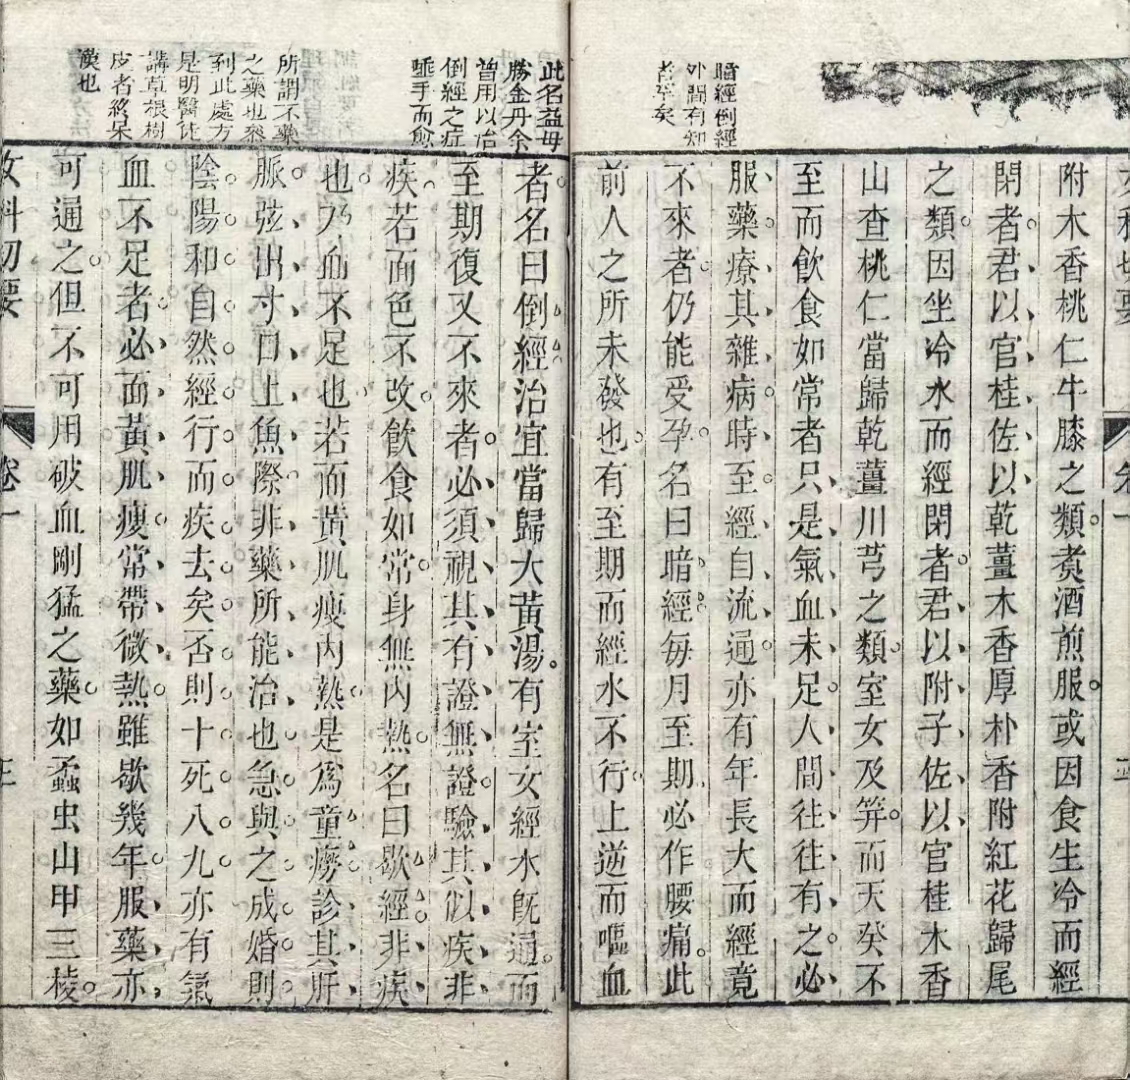 暗經倒經
外間有知
者罕矣
附木香桃仁牛膝之類煮酒煎服或因食生冷而經
閉者君以官桂佐以乾薑木香厚朴香附紅花歸尾
之類因坐冷水而經閉者君以附子佐以官桂木香
山查桃仁當歸乾薑川芎之類室女及笄而天癸不
至而飲食如常者只是氣血未足人間往往有之必
服藥療其雜病時至經自流通亦有年長大而經竟
不來者仍能受孕名曰暗經每月至期必作腰痛此
前人之所未發也有至期而經水不行上逆而嘔血
此名益母
勝金丹余
曾用以治
倒經之症
垂手而愈
所謂不藥
之藥也
到此處方
是明醫從
講草根樹
皮者終呆
漢也
者名曰倒經治宜當歸大黃湯有室女經水既通而
至期復又不來者必須視其有證無證驗其似疾非
疾若面色不改飲食如常身無內熱名曰歇經非疾
也乃血不足也若面黃肌瘦內熱是為童癆診其肝
脈弦出寸口上魚際非藥所能治也急與之成婚則
陰陽和自然經行而疾去矣否則十死八九亦有氣
血不足者必面黃肌瘦常帶微熱雖歇幾年服藥亦
可通之但不可用破血剛猛之藥如蝱虫山甲三棱
女科切要
卷一